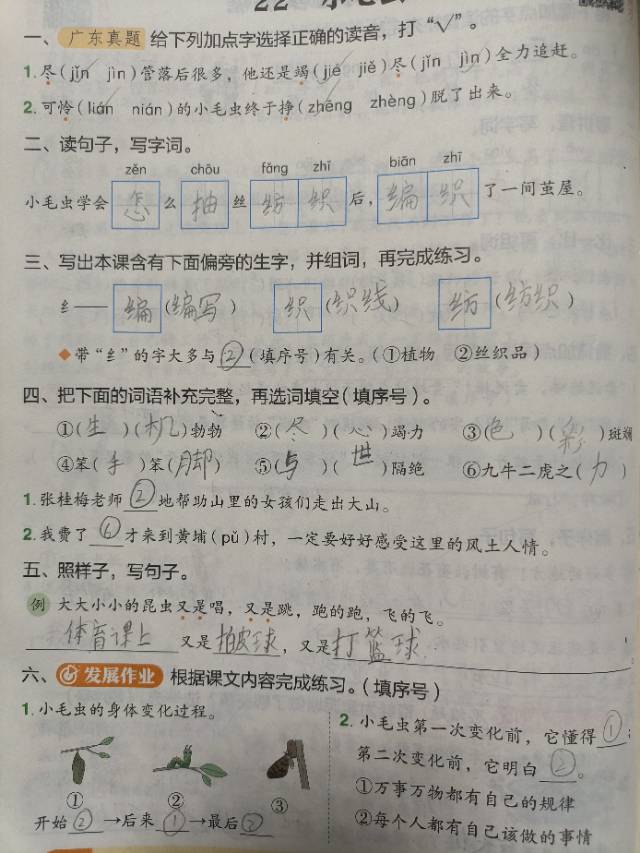 22 小毛虫
一、广东真题 给下列加点字选择正确的读音，打“√”。
1.尽(jǐn jìn)管落后很多，他还是竭(jié jiē)尽(jǐn jìn)全力追赶。
2.可怜(lián nián)的小毛虫终于挣(zhēng zhèng)脱了出来。
二、读句子，写字词。
zěn chōu fǎng zhī biān zhī
小毛虫学会 怎 么 抽 丝 纺 织 后，编 织 了一间茧屋。
三、写出本课含有下面偏旁的生字，并组词，再完成练习。
纟—— 编(编写) 织(织线) 纺(纺织)
◆带“纟”的字大多与②(填序号)有关。(①植物 ②丝织品)
四、把下面的词语补充完整，再选词填空(填序号)。
①(生)(机)勃勃 ②(尽)(心)竭力 ③(色)(彩)斑斓
④笨(手)笨(脚) ⑤(与)(世)隔绝 ⑥九牛二虎之(力)
1.张桂梅老师②地帮助山里的女孩们走出大山。
2.我费了⑥才来到黄埔(pǔ)村，一定要好好感受这里的风土人情。
五、照样子，写句子。
例 大大小小的昆虫又是唱，又是跳，跑的跑，飞的飞。
体育课上 又是拍皮球，又是打篮球.
六、发展作业 根据课文内容完成练习。(填序号)
1.小毛虫的身体变化过程。
① ② ③
开始②→后来①→最后②
2.小毛虫第一次变化前，它懂得①
第二次变化前，它明白②。
①万事万物都有自己的规律
②每个人都有自己该做的事情